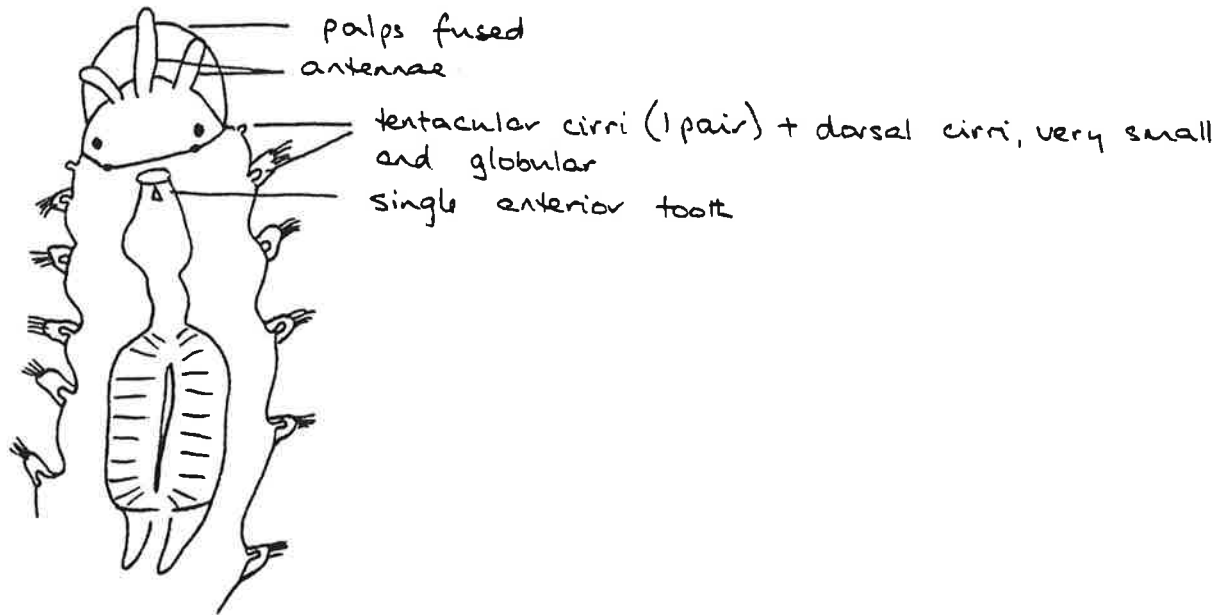 palps fused
antennae
tentacular cirri (1 pair) + dorsal cirri, very small
and globular
single anterior tooth